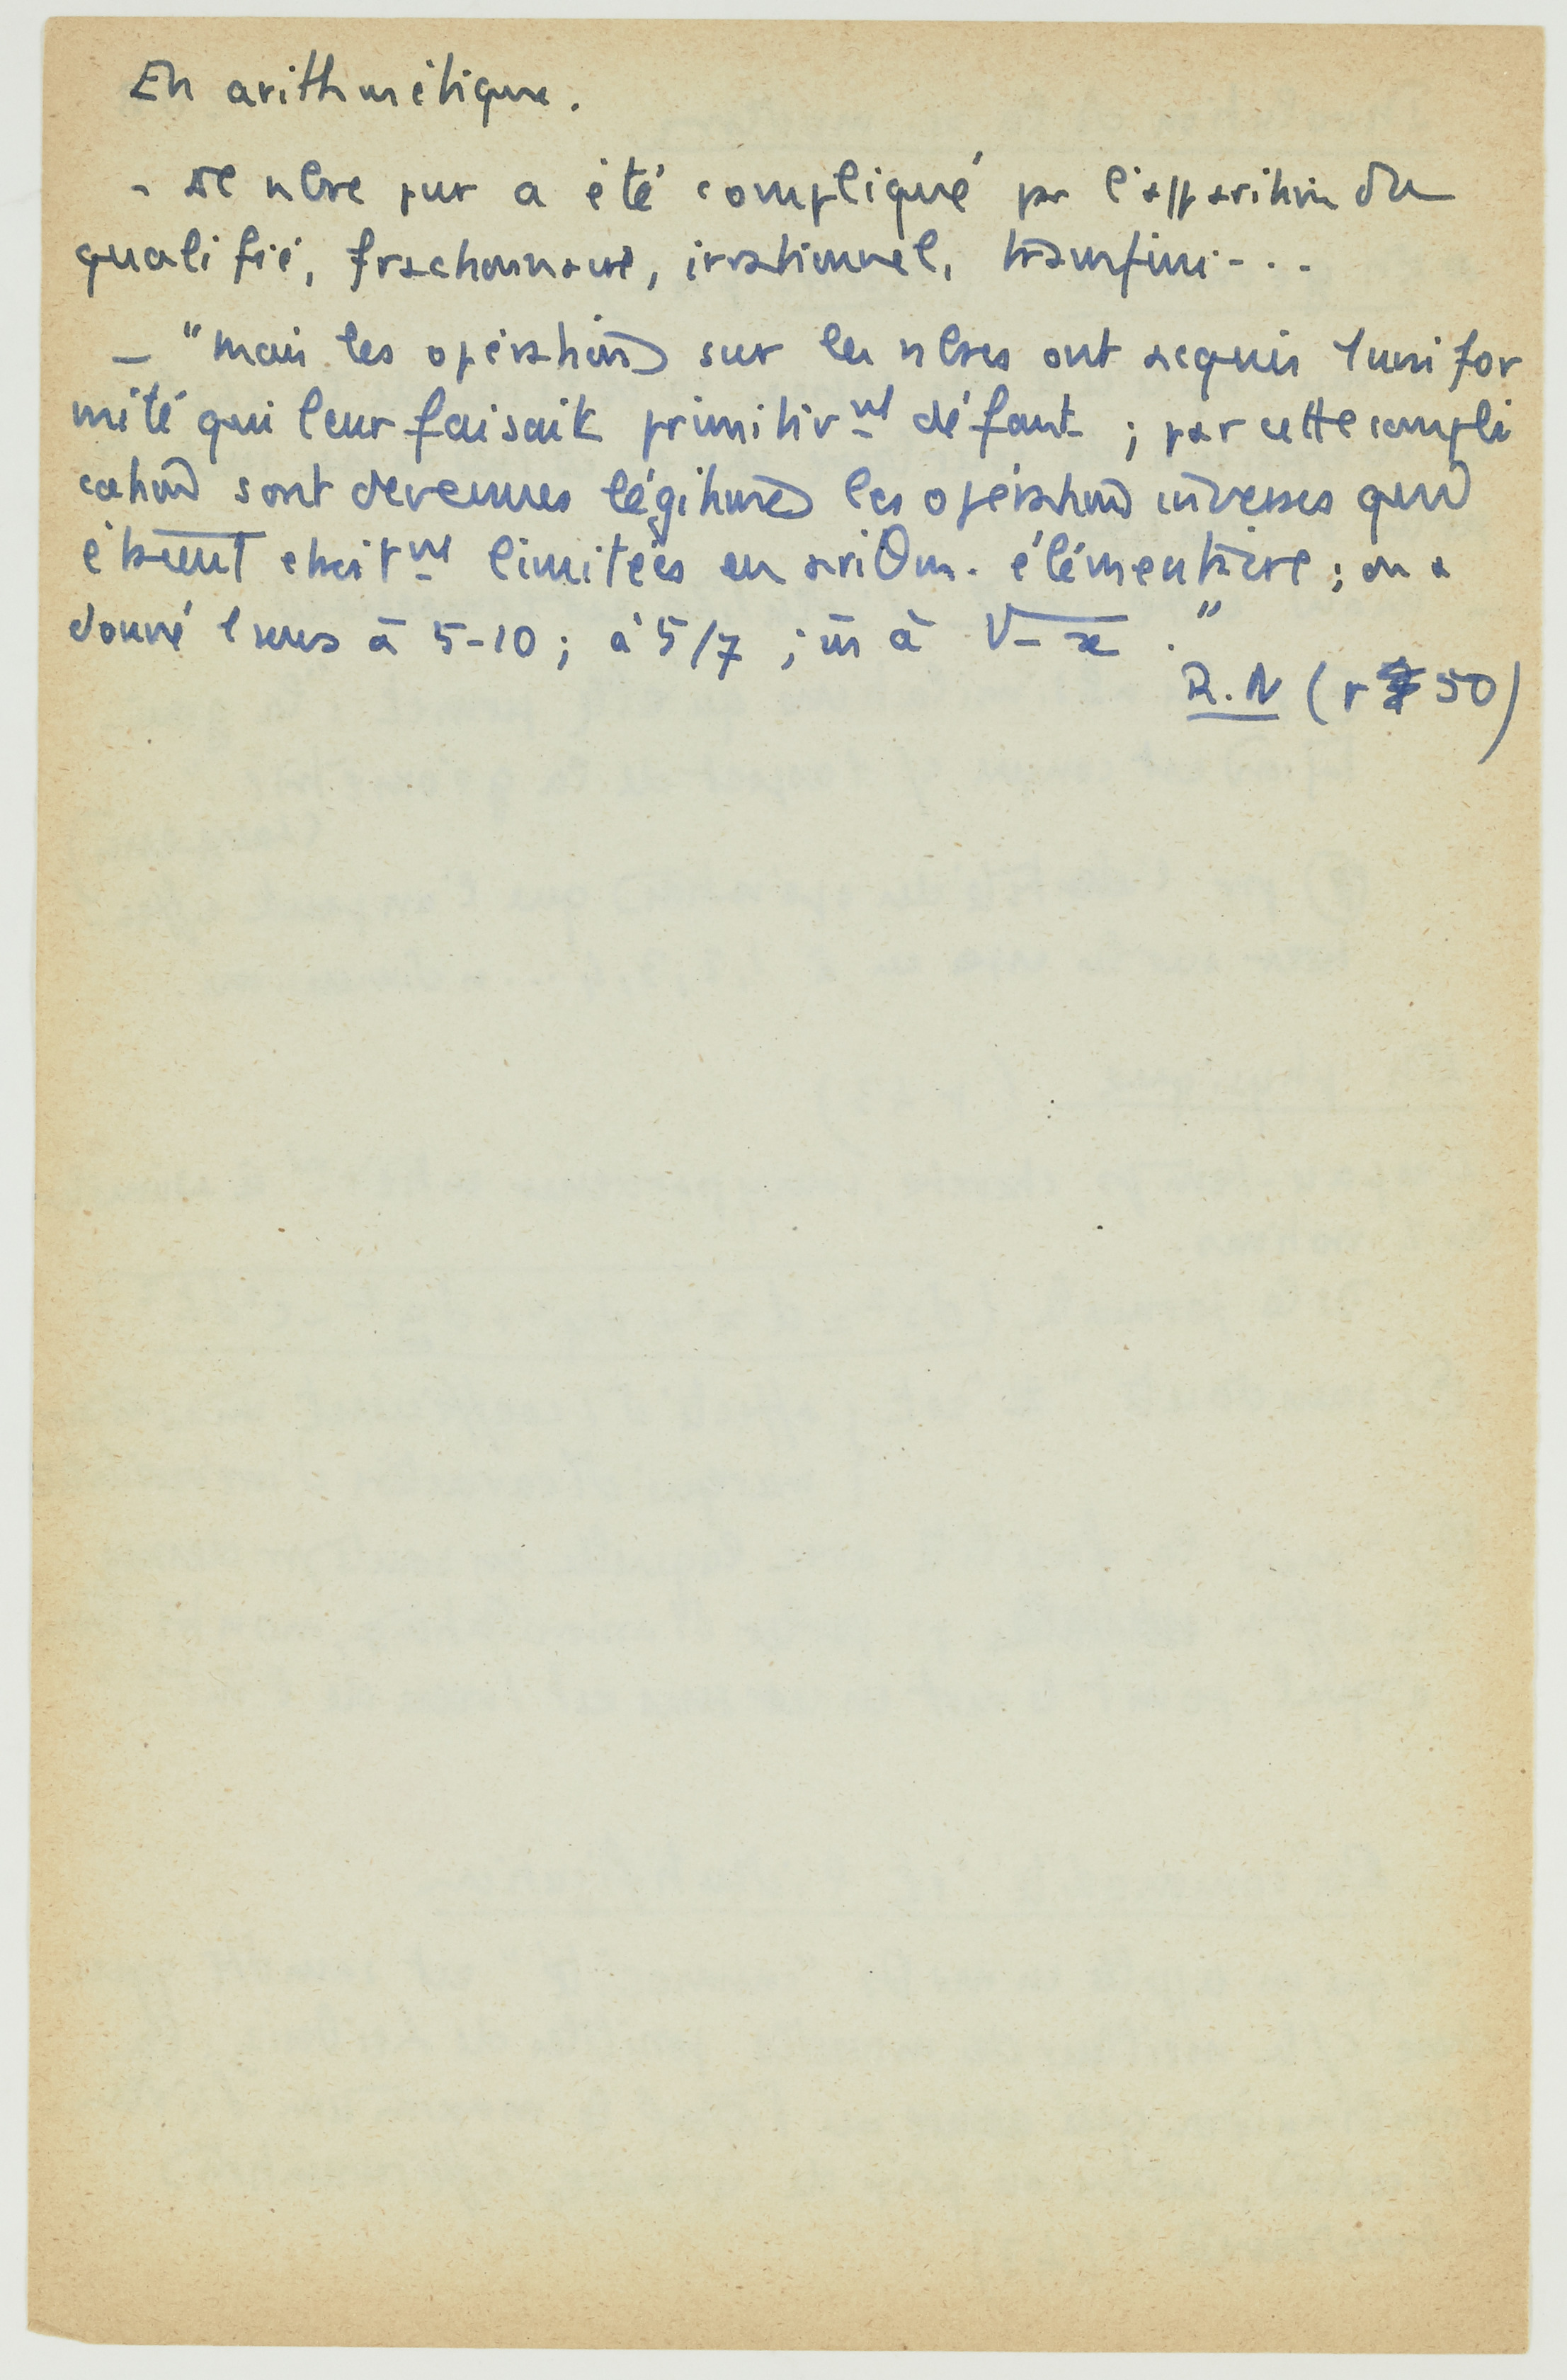 En arithmétique.
- Le nbre pur a été compliqué par l'apparition du
qualifié, fractionnaire, irrationnel, transfini...
- "Mais les opérations sur les nbres ont acquis l'unifor
mité qui leur faisait primitivnt défaut ; par cette compli
cation sont devenues légitimes les opérations inverses qui
étaient étroitnt limitées en ariθm. élémentaire ; on a
donné 1 sens à 5-10 ; à 5/7 ; à √-x ."
R.N (r 50)